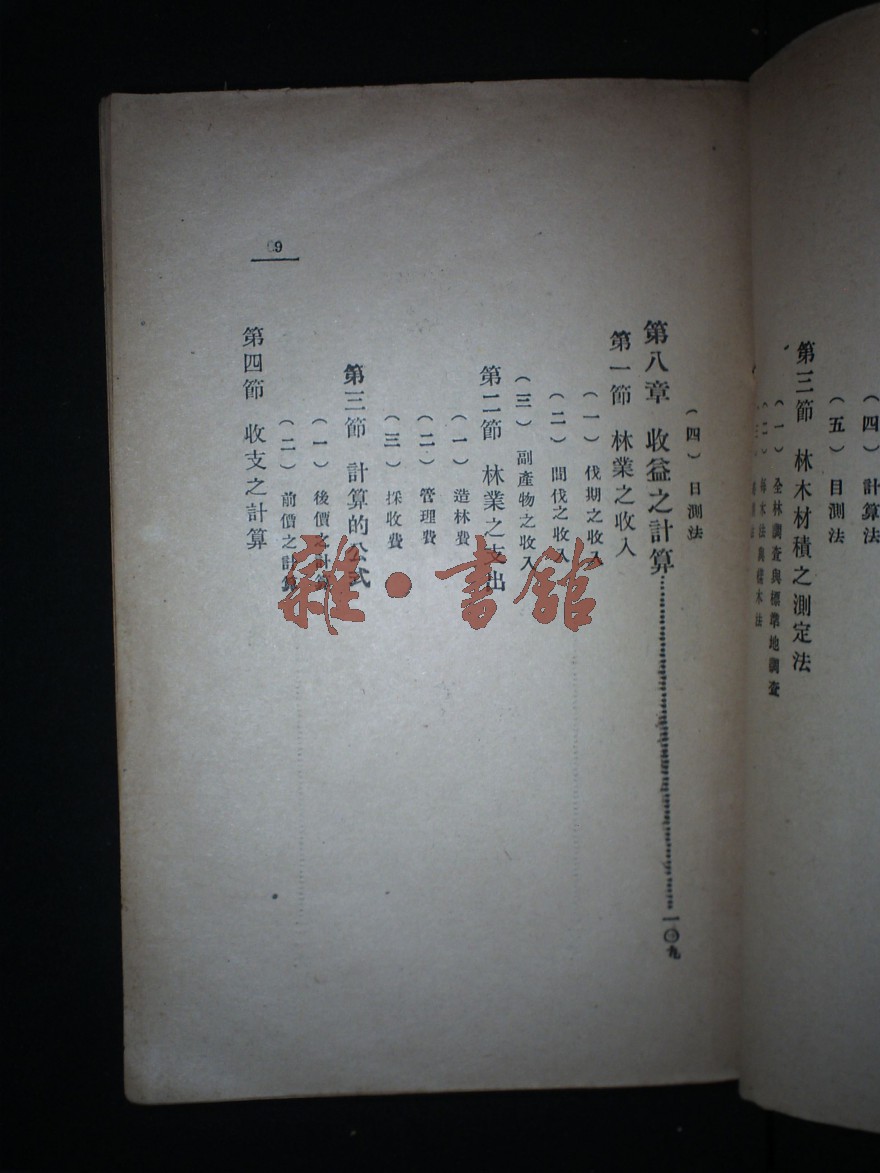 （四）計算法
（五）目測法
第三節 林木材積之測定法
（一）全林調查與標準地調查
（二）每木法與標木法
（四）目測法
第八章 收益之計算……一〇九
第一節 林業之收入
（一）伐期之收入
（二）間伐之收入
（三）副產物之收入
第二節 林業之支出
（一）造林費
（二）管理費
（三）採收費
第三節 計算的公式
（一）後價之計算
（二）前價之計算
第四節 收支之計算
9
雜·書館